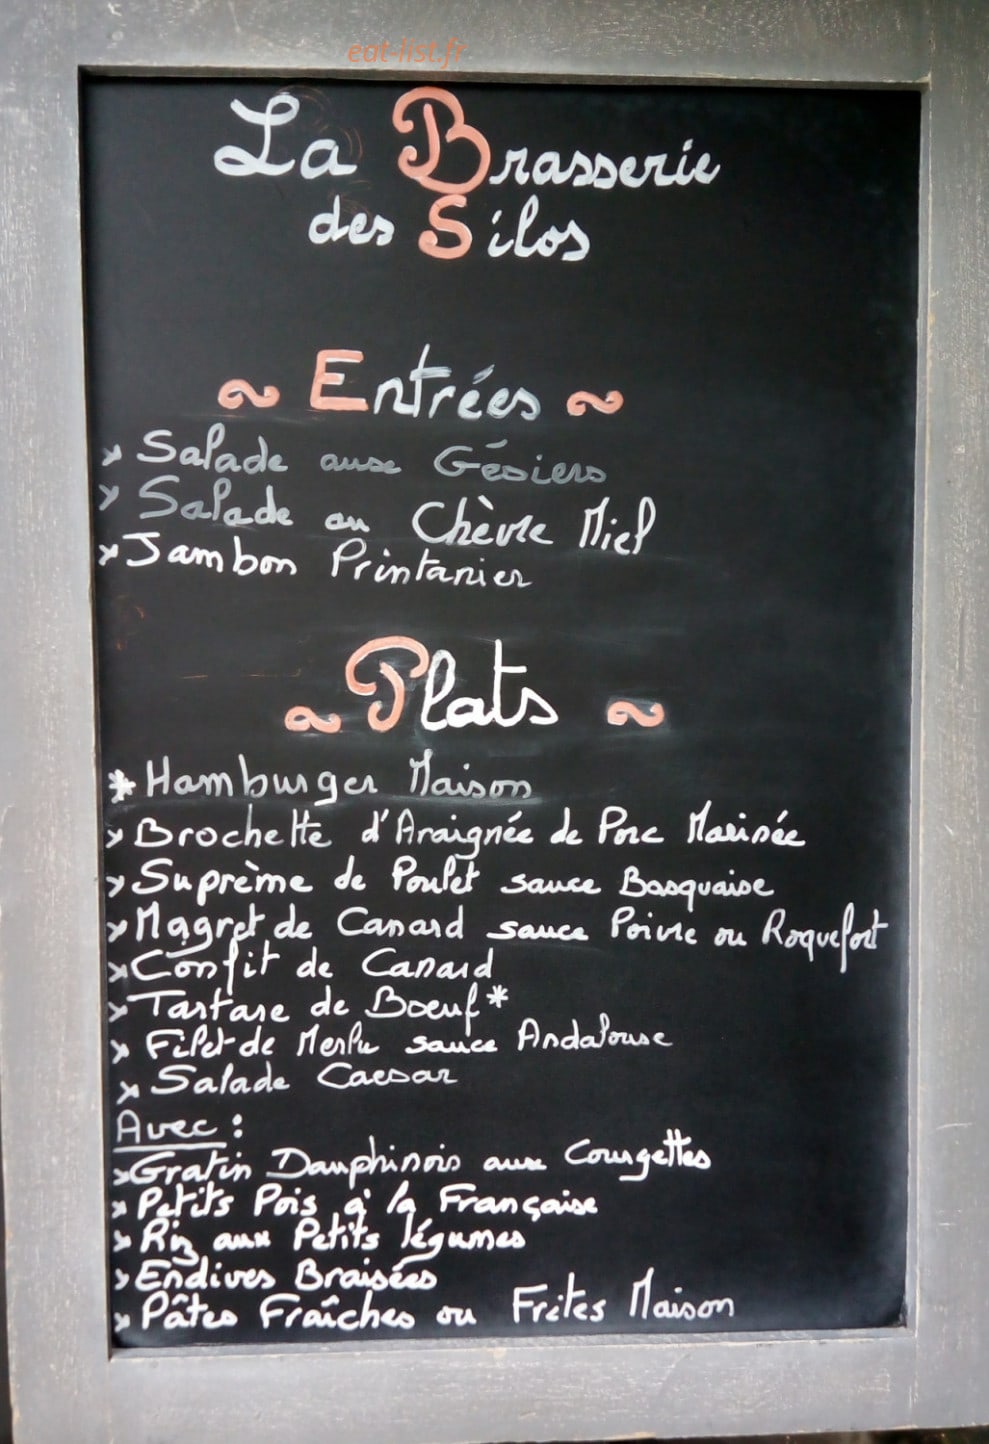 eat-list.fr
La Brasserie
des Silos
~ Entrées ~
Salade aux Gésiers
Salade au Chèvre Miel
Jambon Printanier
~ Plats ~
* Hamburger Maison
Brochette d'Araignée de Porc Marinée
Suprème de Poulet sauce Basquaise
Magret de Canard sauce Poivre ou Roquefort
Confit de Canard
Tartare de Boeuf *
Filet de Merlu sauce Andalouse
Salade Caesar
Avec :
Gratin Dauphinois aux Courgettes
Petits Pois à la Française
Riz aux Petits légumes
Endives Braisées
Pâtes Fraîches ou Frites Maison